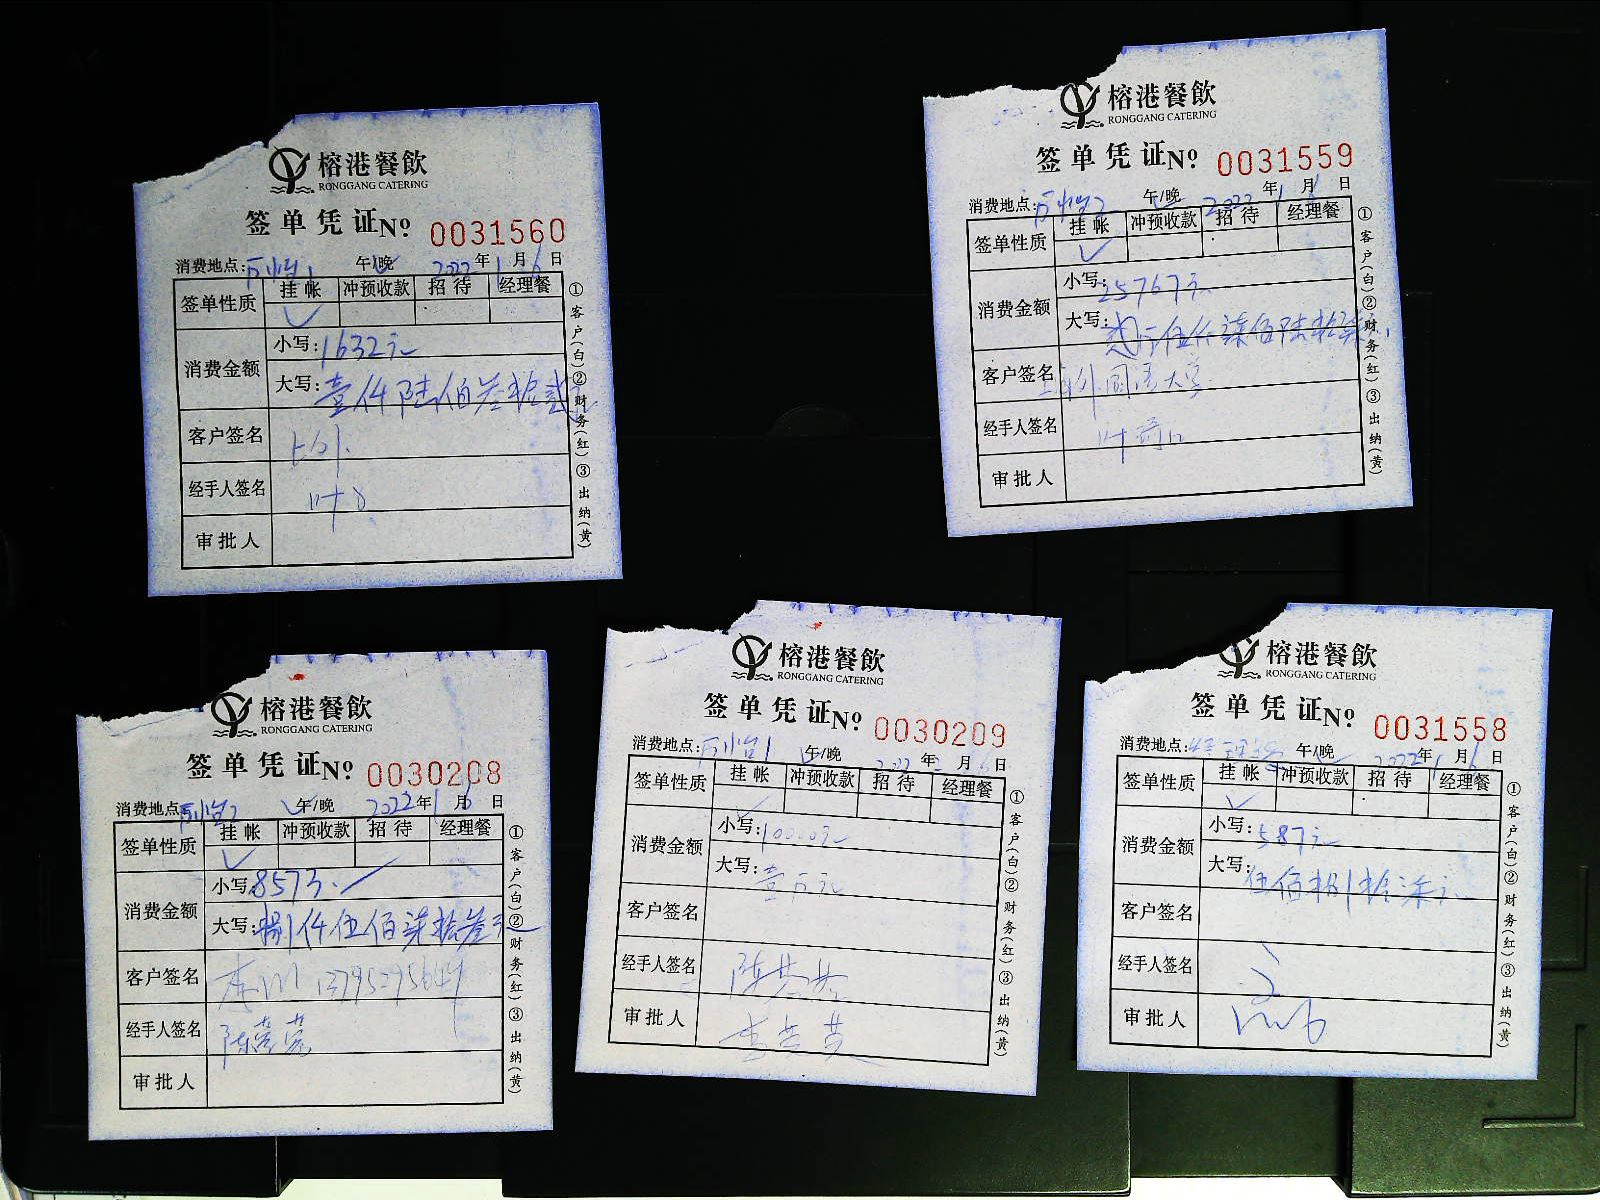 榕港餐飲
RONGGANG CATERING
签单凭证№ 0031560
消费地点: 午/晚 2022年1月6日
签单性质 挂帐 冲预收款 招待 经理餐
消费金额
小写:1632元
大写:壹仟陆佰叁拾贰元
客户签名 上外
经手人签名 叶
审批人
①客户(白)②财务(红)③出纳(黄)
榕港餐飲
RONGGANG CATERING
签单凭证№ 0031559
消费地点: 午/晚 2022年1月6日
签单性质 挂帐 冲预收款 招待 经理餐
消费金额
小写:25767元
大写:贰万伍仟柒佰陆拾柒元
客户签名 上海外国语大学
经手人签名 叶
审批人
①客户(白)②财务(红)③出纳(黄)
榕港餐飲
RONGGANG CATERING
签单凭证№ 0030208
消费地点: 午/晚 2022年1月6日
签单性质 挂帐 冲预收款 招待 经理餐
消费金额
小写:8573元
大写:捌仟伍佰柒拾叁元
客户签名
经手人签名 陈
审批人
①客户(白)②财务(红)③出纳(黄)
榕港餐飲
RONGGANG CATERING
签单凭证№ 0030209
消费地点: 午/晚 2022年 月 日
签单性质 挂帐 冲预收款 招待 经理餐
消费金额
小写:10000元
大写:壹万元
客户签名
经手人签名 陈
审批人
①客户(白)②财务(红)③出纳(黄)
榕港餐飲
RONGGANG CATERING
签单凭证№ 0031558
消费地点: 午/晚 2022年1月6日
签单性质 挂帐 冲预收款 招待 经理餐
消费金额
小写:587元
大写:伍佰捌拾柒元
客户签名
经手人签名
审批人
①客户(白)②财务(红)③出纳(黄)